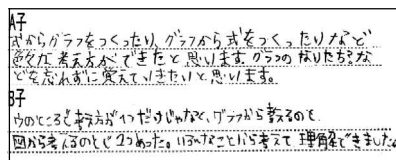 A子
式からグラフをつくったり、グラフから式をつくったりなど
色々な考え方ができたと思います。グラフのなりたちな
どを忘れずに覚えていきたいと思います。
B子
ウのところで考え方が1つだけじゃなく、グラフから考えるのと
図から考えるのと2つあった。いろんなことから考えて理解できました。